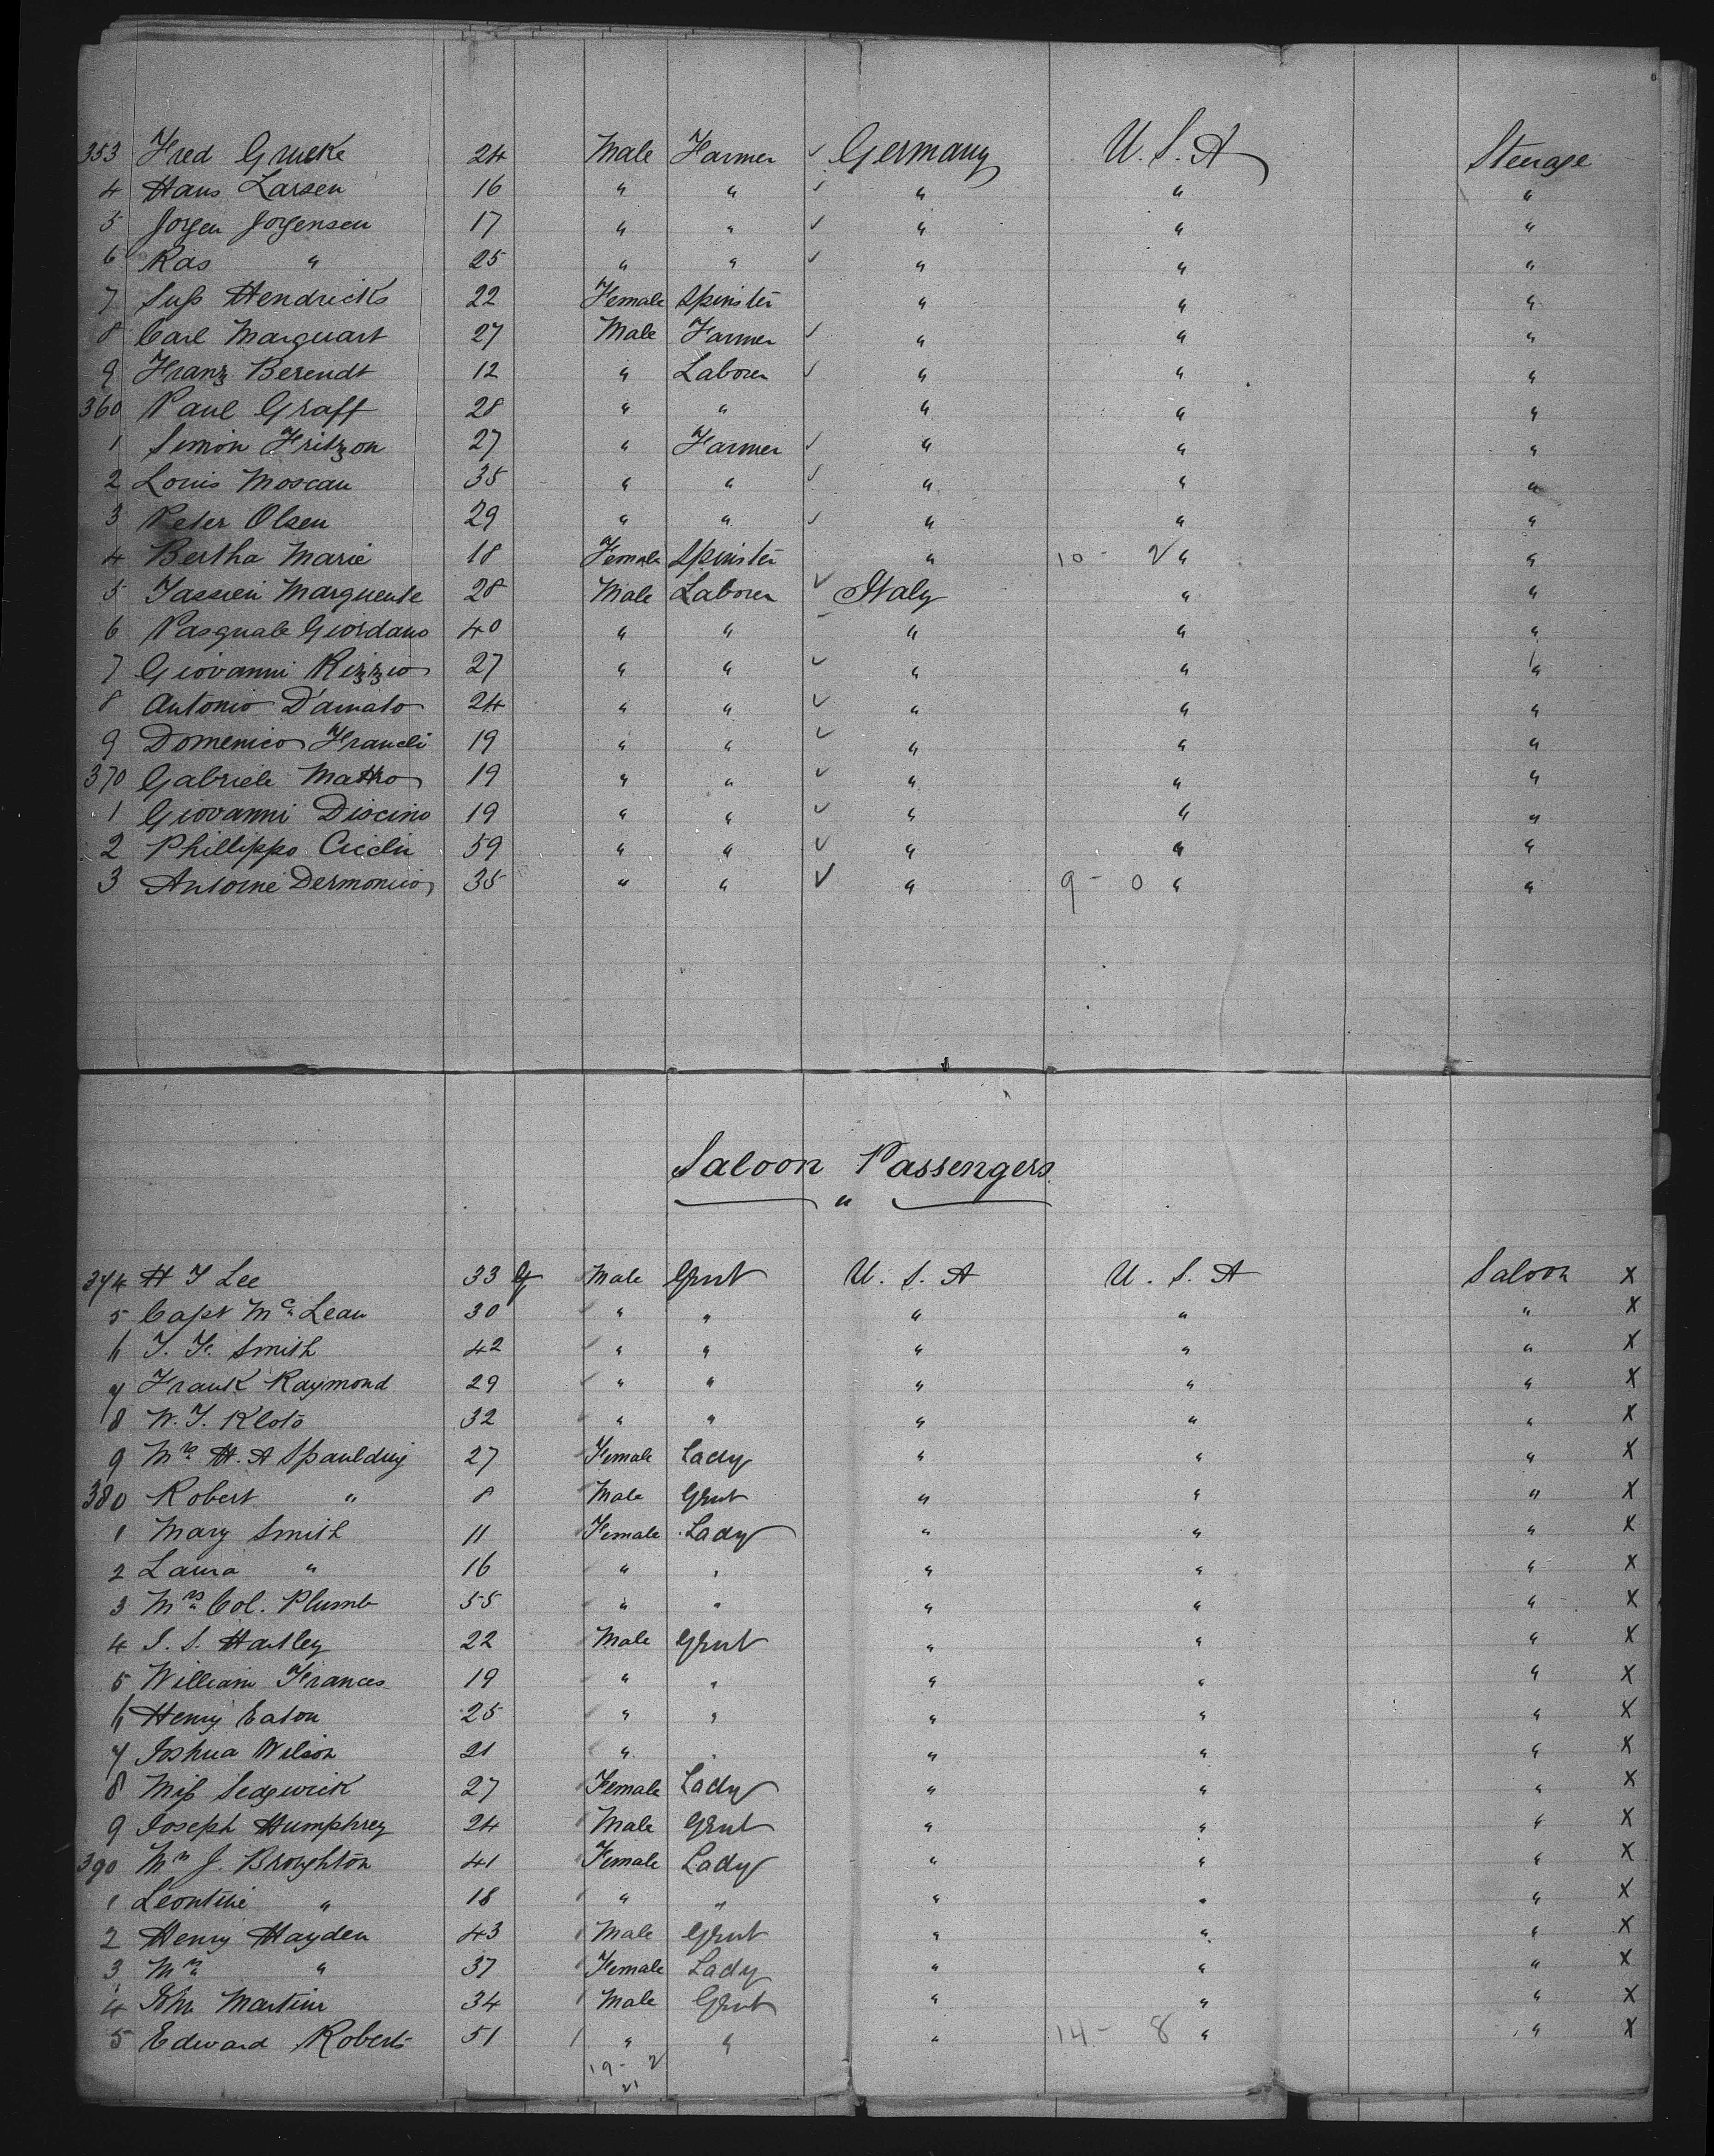 353 Fred Grucke 24 Male Farmer ✓ Germany U. S. A Steerage
4 Hans Larsen 16 " " ✓ " " "
5 Jorgen Jorgensen 17 " " ✓ " " "
6 Ras " 25 " " ✓ " " "
7 Hendricks 22 Female Spinster " " "
8 Carl Marquart 27 Male Farmer ✓ " " "
9 Franz Berendt 12 " Laborer ✓ " " "
360 Paul Graff 28 " " " " "
1 Simon Fritzon 27 " Farmer ✓ " " "
2 Louis Moscau 35 " " ✓ " " "
3 Peter Olsen 29 " " ✓ " " "
4 Bertha Marie 18 Female Spinster " 10 - 2 " "
5 Marguente 28 Male Laborer ✓ Italy " "
6 Pasquale Giordano 40 " " " " "
7 Giovanni Rizzio 27 " " ✓ " " "
8 Antonio D'amato 24 " " ✓ " " "
9 Domenico 19 " " ✓ " " "
370 Gabriele Mattro 19 " " ✓ " " "
1 Giovanni Discino 19 " " ✓ " " "
2 Phillippo 59 " " ✓ " " "
3 Antoine Dermonico 35 " " ✓ " 9 - 0 " "
Saloon Passengers
"
374 H T Lee 33 y Male Gent U. S. A U. S. A Saloon X
5 Capt Mc Lean 30 " " " " " X
6 T. F. Smith 42 " " " " " X
7 Frank Raymond 29 " " " " " X
8 W. T. Kloto 32 " " " " " X
9 Mrs H. A Spaulding 27 Female Lady " " " X
380 Robert " 8 Male Gent " " " X
1 Mary Smith 11 Female Lady " " " X
2 Laura " 16 " " " " " X
3 Mrs Col. Plumb 55 " " " " " X
4 I. S. Hartley 22 Male Gent " " " X
5 William Frances 19 " " " " " X
6 Henry Eaton 25 " " " " " X
7 Joshua Wilson 21 " " " " " X
8 Miss Sedgwick 27 Female Lady " " " X
9 Joseph Humphrey 24 Male Gent " " " X
390 Mrs J. Broughton 41 Female Lady " " " X
1 Leontine " 18 " " " " " X
2 Henry Hayden 43 Male Gent " " " X
3 Mrs " 37 Female Lady " " " X
4 John Martin 34 Male Gent " " " X
5 Edward Roberts 51 " " " 14 - 8 " " X
19 - 2
21